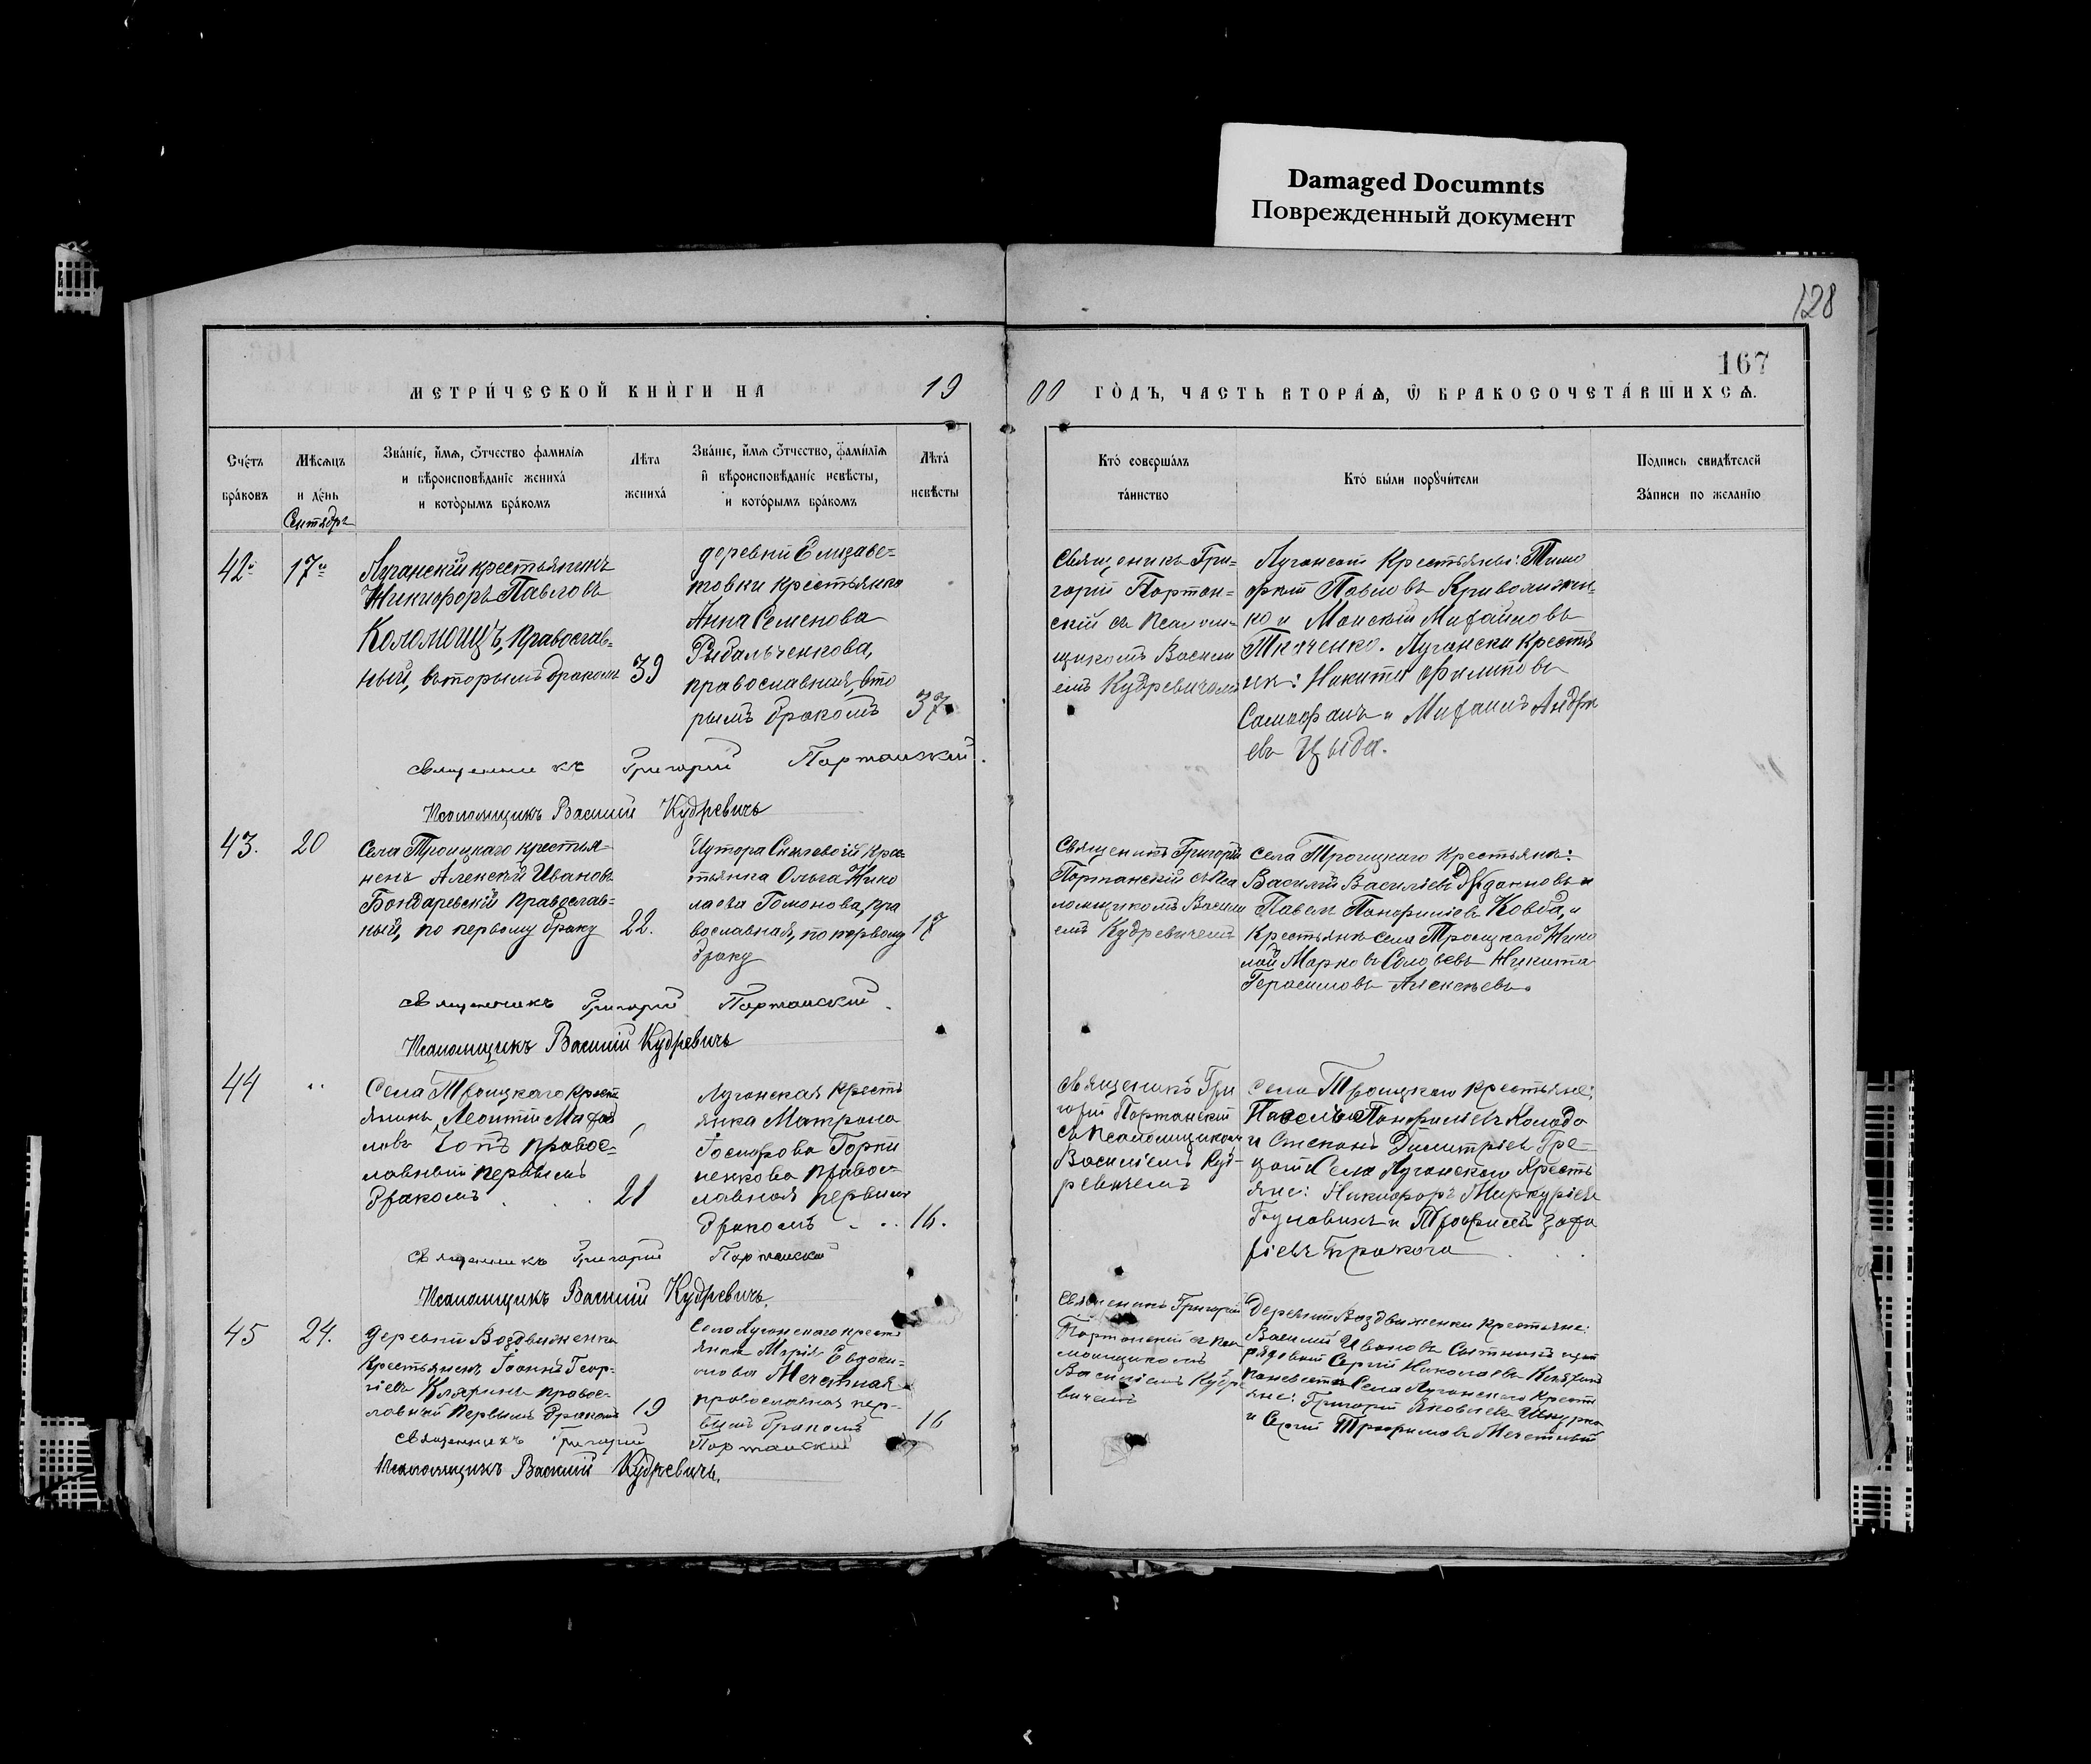 Damaged Documnts
Поврежденный документ
128
167
МЕТРИ́ЧЕСКОЙ КНИ́ГИ НА 19
00 ГО́ДЪ, ЧАСТЬ ВТОРА́Ѧ, Ѿ БРАКОСОЧЕТА́ВШИХСѦ.
Сче́тъ бра́ковъ
Мѣсѧцъ и де́нь
Сентябрь
Зва́нїе, и҆́мѧ, ѻ҆́тчество фамилїѧ
и вѣроисповѣ́данїе жениха́
и кото́рымъ бра́комъ
Лѣта жениха́
Зва́нїе, и҆́мѧ ѻ҆́тчество, фами́лїѧ
и҆ вѣроисповѣ́данїе невѣ́сты,
и кото́рымъ бра́комъ
Лѣта́ невѣ́сты
Кто́ соверша́лъ
та́инство
Кто́ бы́ли порꙋчи́тели
Подпись свидѣ́телей
За́писи по жела́нїю
42й
17й
Луганскій крестьянинъ
Никифоръ Павловъ
Коломоицъ, православ=
ный, вторымъ бракомъ
39
деревни Елизаве=
товки крестьянка
Анна Семенова
Рыбальченкова,
православная, вто
рымъ бракомъ
37
Священикъ Гри=
горій Портан=
скій съ Псалом=
щикомъ Васил
емъ Кудревичемъ
Крестьяны: Тимо
фей Павловъ
но и Михайловъ
Ткаченко. Крестья
Никита Филиповъ
и Михаилъ Андре
евъ Цыба.
священникъ Григорій Портанский.
Псаломщикъ Василій Кудревичъ
43.
20
Села Троицкаго крестья=
ненъ Алексѣй Ивановъ
Бондаревскій православ=
ный, по первому браку
22.
Хутора крес=
тьянка Ольга Нико
лаева Гомонова, пра
вославная, по первому
браку
17
Священикъ Григорій
Портанскій съ Пса
ломщикомъ Васил
емъ Кудревичемъ
Села Троицкаго Крестьяне:
Василій Василіевъ
Павелъ Панфиліевъ Ковба, и
Крестьяне села Троицкаго Нико
лай Марковъ Соловьевъ Никита
Герасимовъ Алексѣевъ.
священникъ Григорій Портанский.
Псаломщикъ Василій Кудревичъ
44
"
Села Троицкаго Крест
янинъ Леонтій Михай
ловъ Чопъ Правос=
лавный первымъ
бракомъ
21
Луганская Кресть
янка Матрона
Іосифова Горпи
ненкова Правос=
лавная первымъ
бракомъ
16.
Священикъ Гри
горій Портанскій
съ Псаломщикомъ
Василіемъ Куд=
ревичемъ
Села Троицкаго крестьяне:
Павелъ Панфиліевъ
и Степанъ Димитріевъ Гре=
Села Луганскаго Кресть
яне: Никифоръ Меркуріевъ
и Трофимъ Заха
ріевъ
священникъ Григорій Портанский
Псаломщикъ Василій Кудревичъ.
45
24.
деревни Воздвиженки
Крестьяненъ Іоаннъ Геор=
гіевъ Правос=
лавный первымъ бракомъ
19
Села Луганскаго крест
янка Марія Евдоки=
мова Мечетная
православная пер=
вымъ бракомъ
16
Священикъ Григорій
Портанскій съ Пса
ломщикомъ
Василіемъ Кудре
вичемъ
Деревни Воздвиженки крестьяне:
Василій Ивановъ
рядовый Сергій Николаевъ
Села Луганскаго Крест
яне: Григорій Яковлевъ
и Сергій Трофимовъ Мечетный
священникъ Григорій Портанский
Псаломщикъ Василій Кудревичъ.